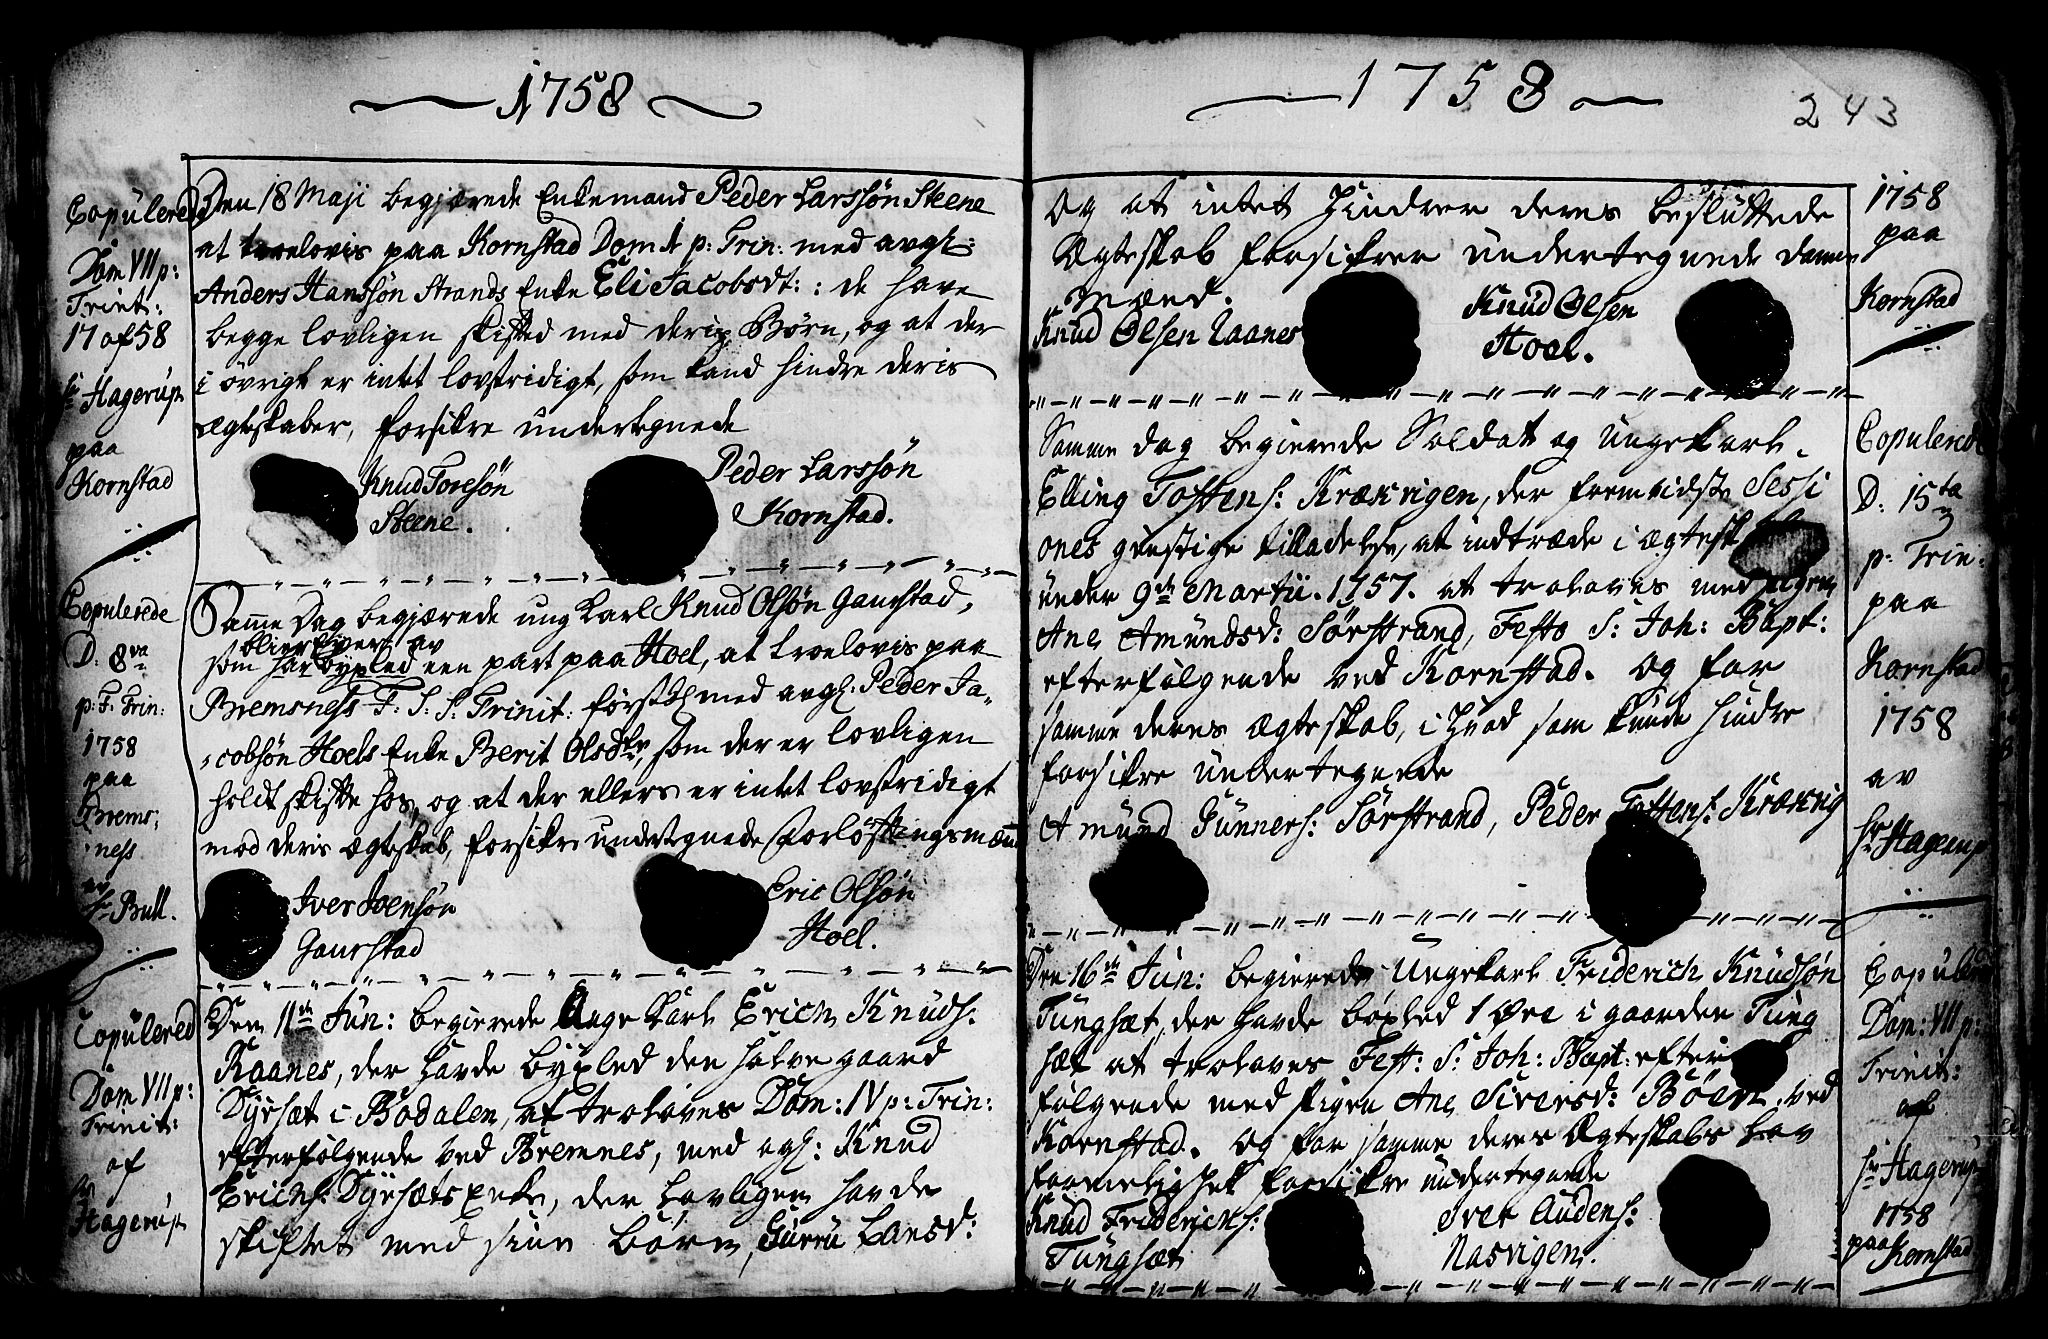 1758
Copulerede
Dom VII p:
Trinit:
17 af 58
Hr Hagerup
paa
Kornstad
Den 18 Maji begjærede Enkemand Peder Larssøn Steene
at troelovis paa Kornstad Dom 1 p: Trin: med avgl:
Anders Hanssøn Strands Enke Eli Jacobsdt: : de have
begge lovligen skifted med deris Børn, og at der
i øvrigt er intet lovstridigt, som kand hindre deris
Ægteskaber, forsikre undertegnede
Knud Toresøn Peder Larssøn
Steene. Kornstad.
Copulerede
D: 8va
p: F. Trin:
1758
paa
Brems:
ness
av
Hr Bull.
Samme Dag begjærede ung Karl Knud Olsøn Gaustad,
blier Eyer av
som har byxled een part paa Hoel, at troelovis paa
Bremsness F. S. S. Trinit: førstk med avgl. Peder Ja-
cobsøn Hoels Enke Berit Olsdtr, som der er lovligen
holdt skifte hos, og at der ellers er intet lovstridigt
mod deris Ægteskab, forsikre undertegnede Forløftningsmænd
Iver Joensøn Eric Olsøn
Gaustad Hoel.
Copulered
Dom VII p:
Trinit:
af
Hr
Hagerup
Den 11te Jun: begierede Unge Karl Erich Knuds:
Raanes, der havde byxled den halve gaard
Dyrsæt i Bodalen, at trolaves Dom: IV p: Trin:
efterfølgende ved Bremnes, med agl: Knud
Erichs: Dyrsæts Enke, der lovligen havde
skiftet med sine børn, Gurru Larsd:
1758
243
og at intet hindrer deres besluttede
Ægteskab forsikrer undertegnede Danne
Mænd.
Knud Olsen Raanes Knud Olsen
Hoel.
1758
paa
Kornstad
Samme dag begierede Soldat og ungekarl
Elling Tostens: Krækvigen, der fremvidste Sessi
ones gunstige tilladelse, at indtræde i Ægtesk
under 9de Martii. 1757. at trolaves med pigen
Ane Amundsd: Sørstrand, Festo S: Joh: Bapt:
efterfølgende ved Kornstad. Og for
samme deres Ægteskab, i hvad som kunde hindre
forsikre undertegnede
Amund Gunners: Sørstrand, Peder Tostens: Krækvig
Copulerede
D: 15ta
p: Trin:
paa
Kornstad
1758
av
Hr Hagerup
Den 16de Jun: begierede Ungekarl Friderich Knudsøn
Tungsæt, der havde bøxled 1 Øre i gaarden Tung
sæt at trolaves Fest: S: Joh: Bapt: efter
følgende med pigen Ane Siversd: Bøen, ved
Kornstad. og for samme deres Ægteskabs lov
formelighet forsikre undertegnede
Knud Friderichs: Iver Audens:
Tungsæt Nasvigen.
Copulered
Dom: VII p:
Trinit:
af
Hr Hagerup
1758
paa Kornstad